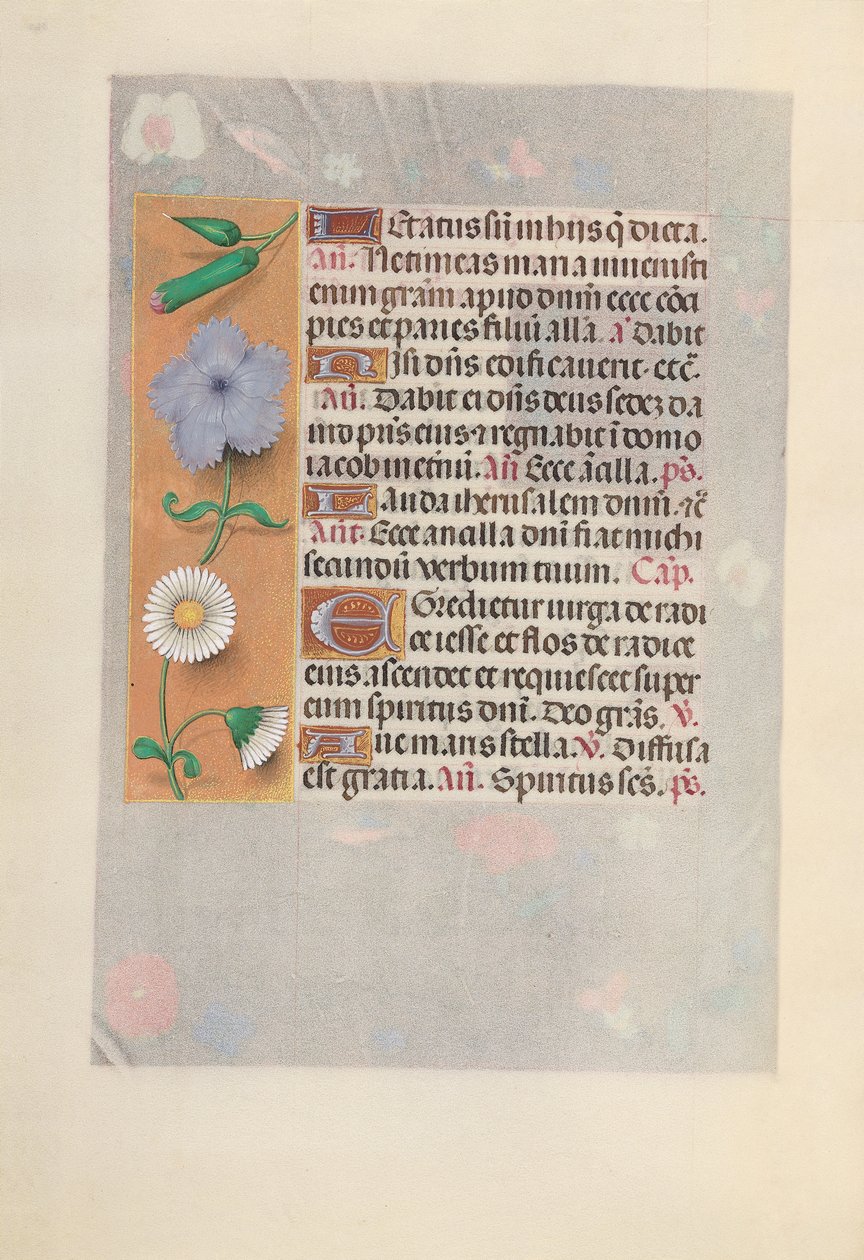 Letatus sū in hijs q̄ dicta.
Añ. Ne timeas maria inuenisti
enim grām apud dnm̄ ecce cōci
pies et paries filiū alla. a̓ Dabit
Nisi dñs edificauerit. etc̄.
Añ. Dabit ei dñs deus sedez da
uid pr̄is eius ⁊ regnabit ī domo
iacob in etnū. Añ Ecce ācilla. ps̄.
Lauda iherusalem dnm̄. ⁊c̄
Añt. Ecce ancilla dnī fiat michi
secundū verbum tuum. Cap̄.
Egredietur uirga de radi
ce iesse et flos de radice
eius ascendet et requiescet super
eum spiritus dnī. Deo grās. V̄.
Aue maris stella. V̄. Diffusa
est gratia. Añ. Spiritus scs̄. ps̄.